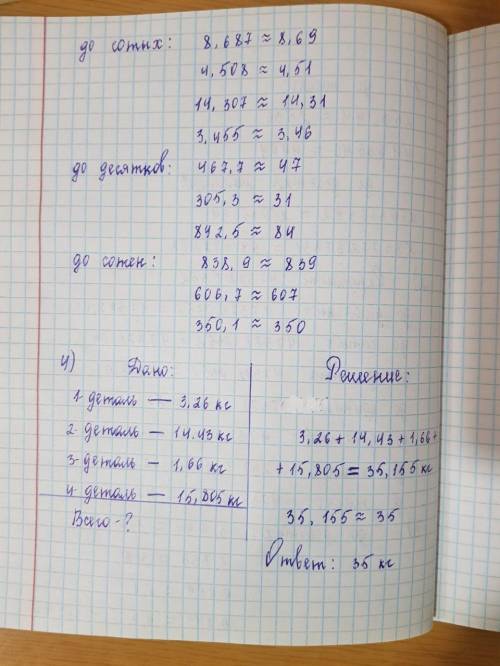 до сотых: 8,687 ≈ 8,69
4,508 ≈ 4,51
14,307 ≈ 14,31
3,455 ≈ 3,46
до десятков: 467,7 ≈ 47
305,3 ≈ 31
842,5 ≈ 84
до сотен: 838,9 ≈ 839
606,7 ≈ 607
350,1 ≈ 350
4) Дано:
1 деталь — 3,26 кг
2 деталь — 14.43 кг
3 деталь — 1,66 кг
4 деталь — 15,805 кг
Всего - ?
Решение:
3,26 + 14,43 + 1,66 +
+ 15,805 = 35,155 кг
35,155 ≈ 35
Ответ: 35 кг